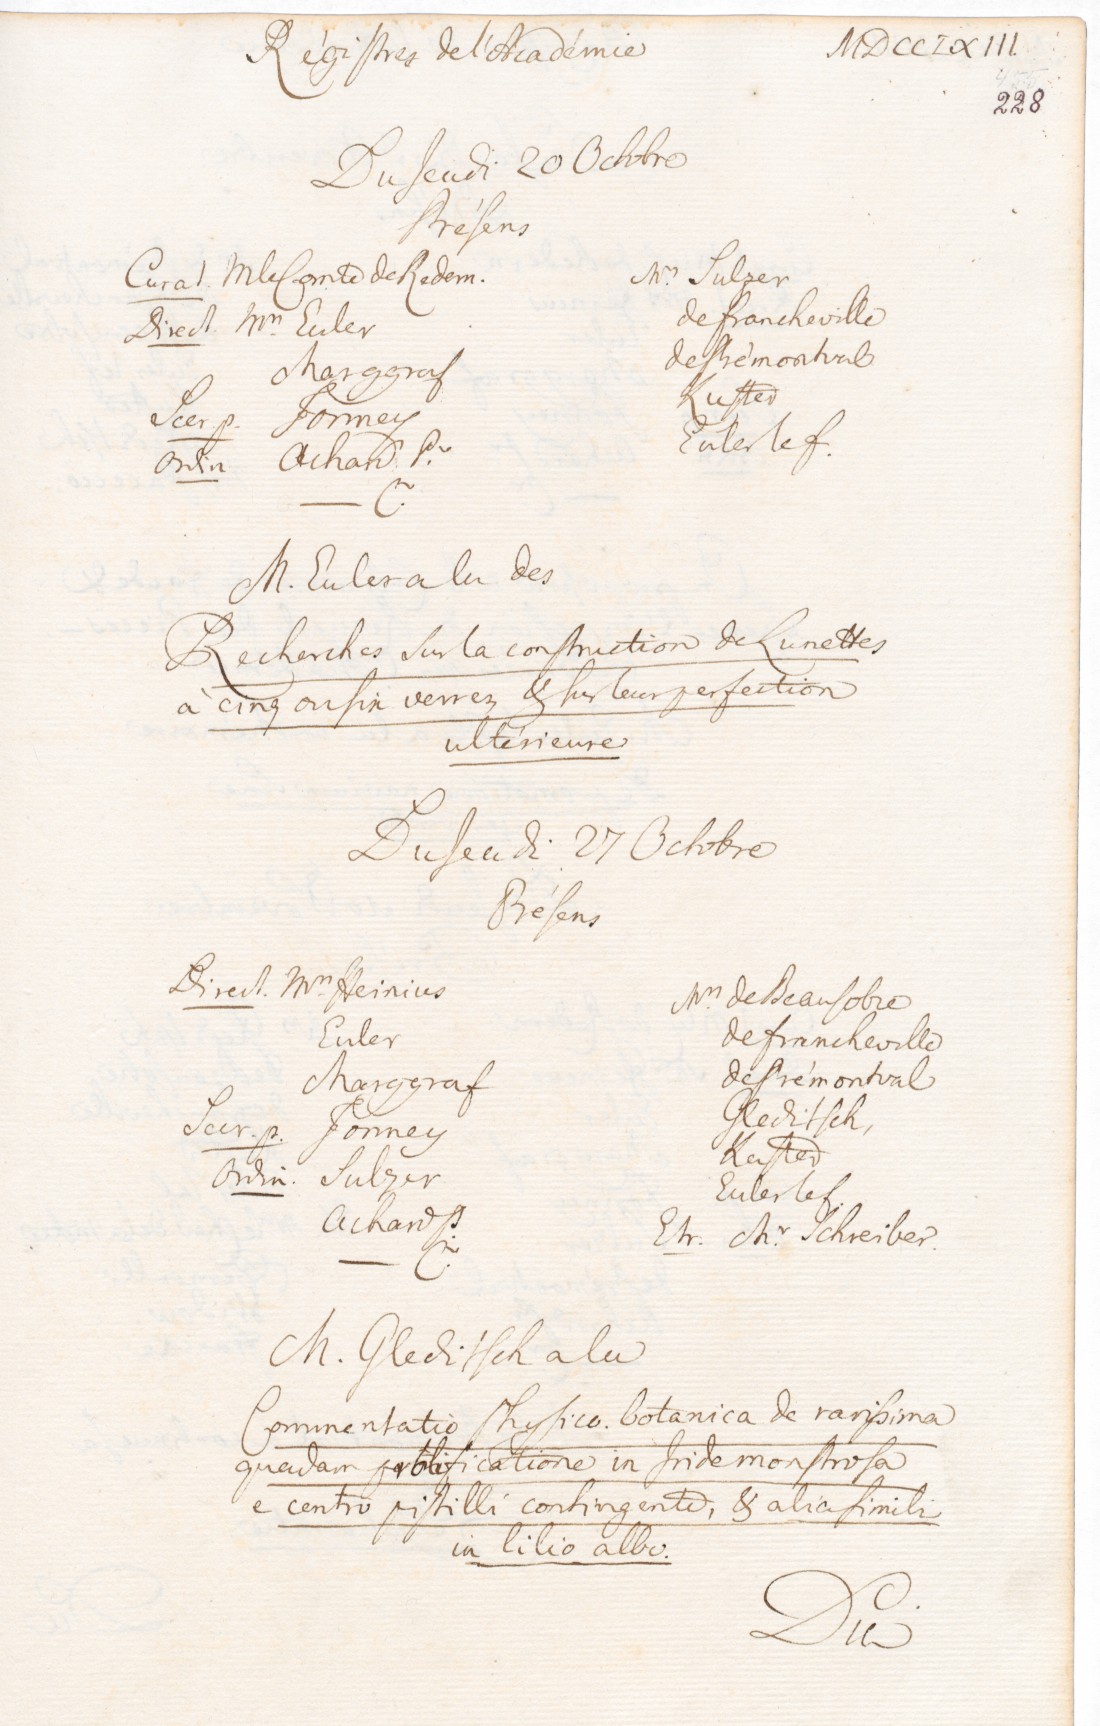 Régistres de l'Académie
MDCCLXIII
228
Du Jeudi 20 Octobre
Présens
Curat. M le Comte de Redern.
Direct. Mrs Euler
Marggraf
Secr. p. Formey
Ordin Achard Pr.
Cr.
Mrs Sulzer
de Francheville
de Prémontval
Kuster
Euler le f.
M. Euler a lu des
Recherches sur la construction de Lunettes
à cinq ou six verrez & sur leur perfection
ultérieure
Du Jeudi 27 Octobre
Présens
Direct. Mrs Heinius
Euler
Marggraf
Secr. p. Formey
Ordin. Sulzer
Achard P.
Cr.
Mrs de Beausobre
de Francheville
de Prémontval
Gleditsch,
Kuster
Euler le f.
Etr. Mr Schreiber.
M. Gleditsch a lu
Commentatio Physico-botanica de rarissima
quadam prolificatione in Iride monstrosa
e centro pistilli contingente, & alia simili
in lilio albo.
Du